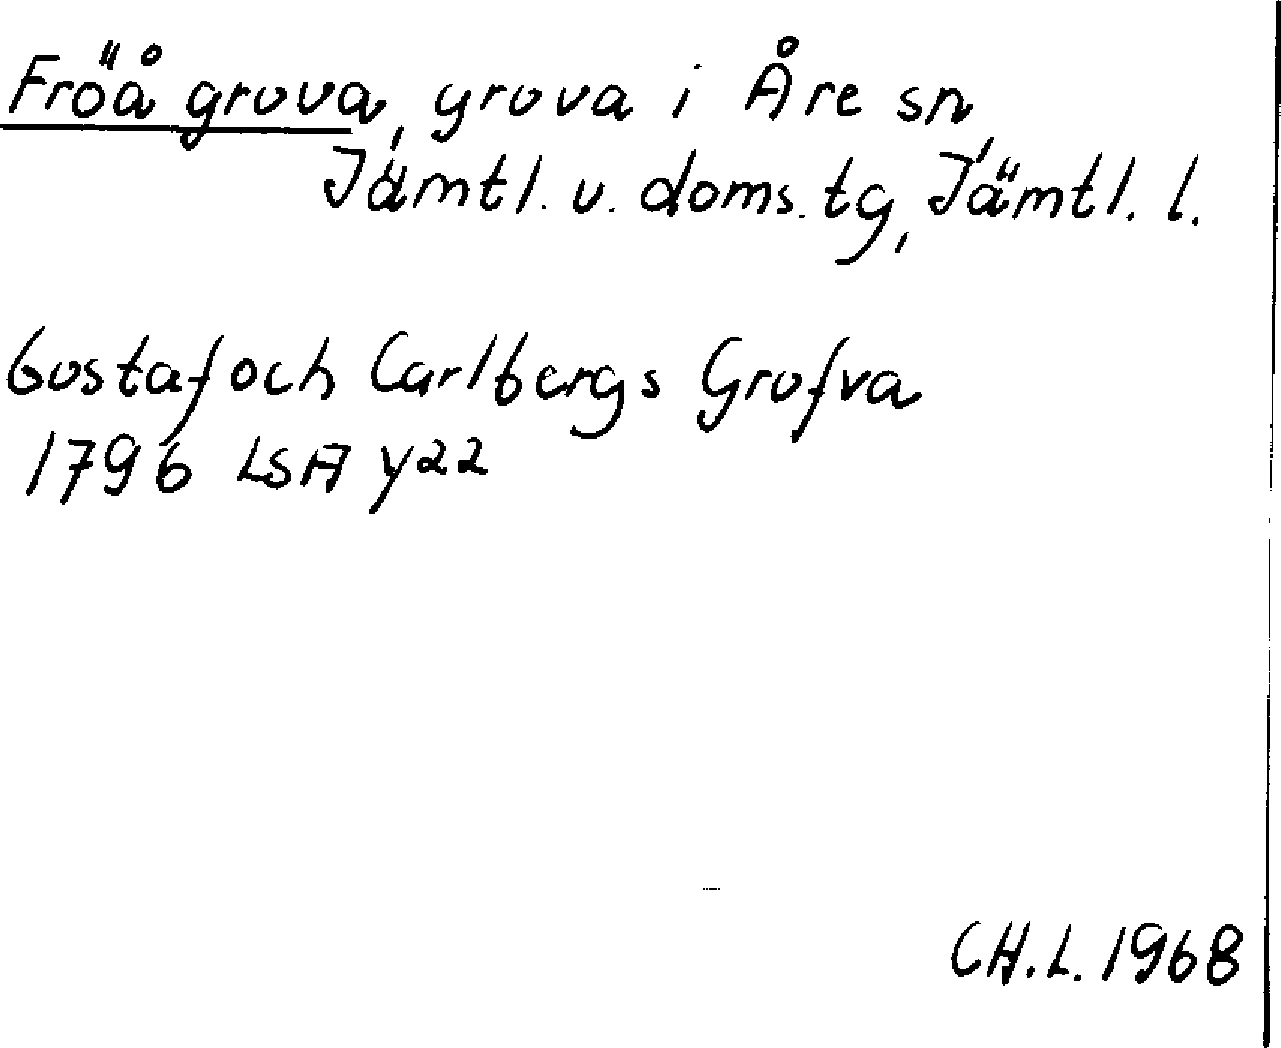 Fröå gruva, gruva i Åre sn,
Jämtl. v. doms. tg, Jämtl. l.
Gustaf och Carlbergs Grufva
1796 LSA Y22
CH.L. 1968